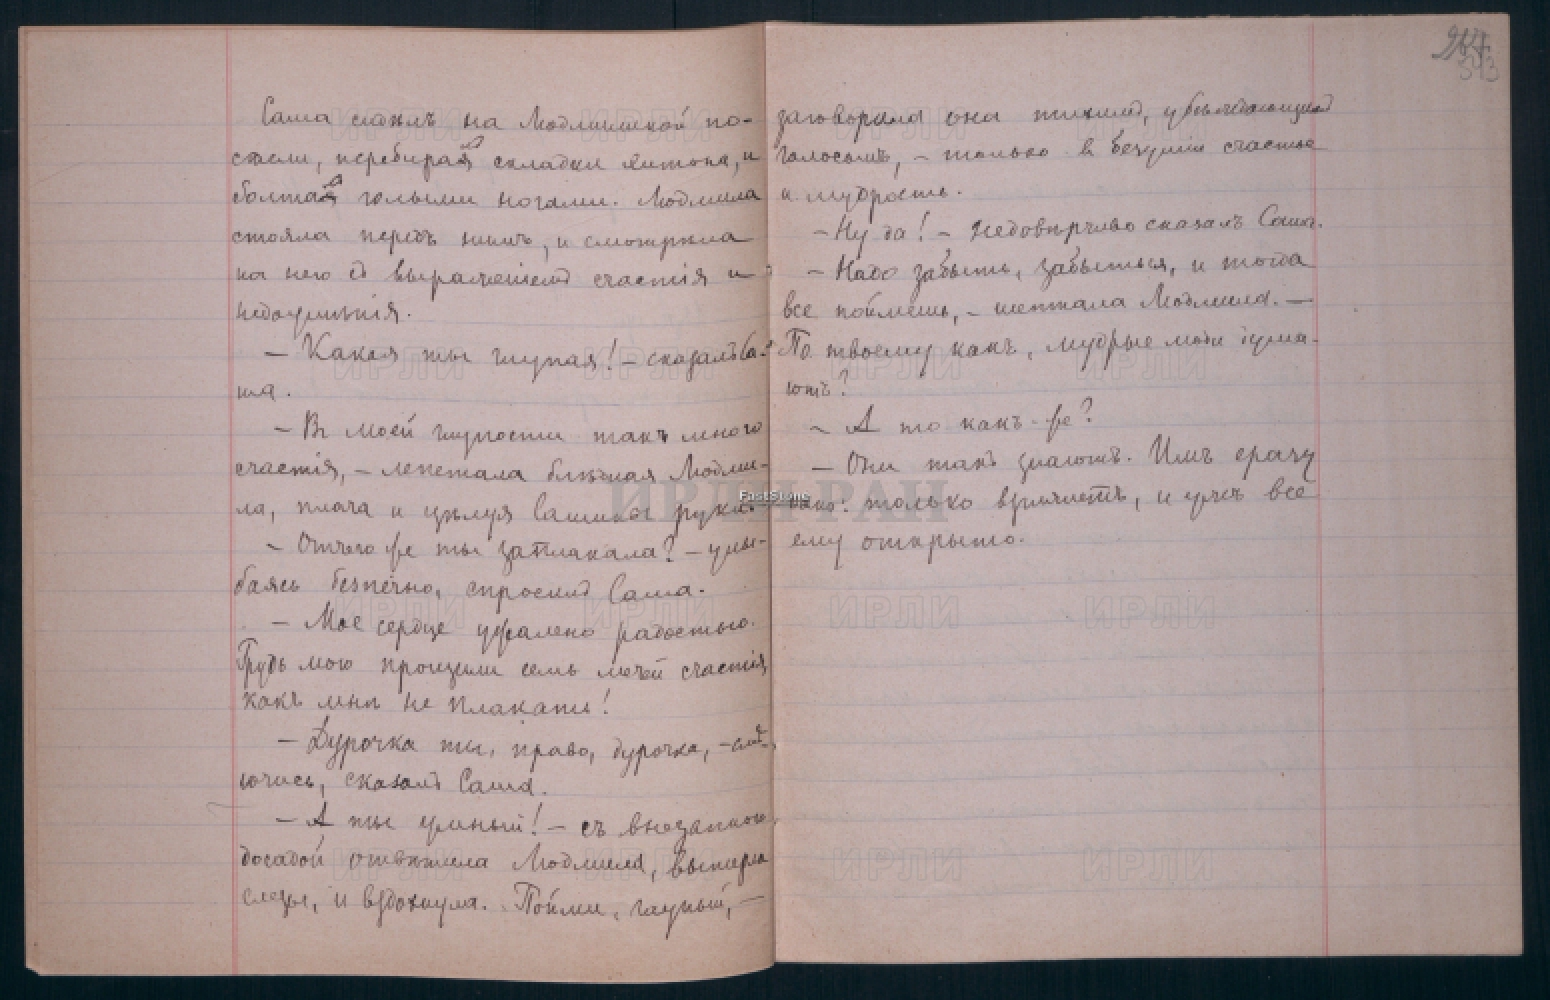 Саша сидѣлъ на Людмилиной по-
стели, перебирая складки хитона, и
болтая голыми ногами. Людмила
стояла передъ нимъ, и смотрѣла
на него съ выраженіемъ счастія и
недоумѣнія.
– Какая ты глупая! – сказалъ Са-
ша.
– Въ моей глупости такъ много
счастія, – лепетала блѣдная Людми-
ла, плача и цѣлуя Сашины руки.
– Отчего же ты заплакала? – улы-
баясь безпечно, спросилъ Саша.
– Мое сердце ужалено радостью.
Грудь мою пронзили семь мечей счастія
какъ мнѣ не плакать!
– Дурочка ты, право, дурочка, – смѣ-
ючись, сказалъ Саша.
– А ты умный! – съ внезапною
досадой отвѣтила Людмила, вытерла
слезы, и вздохнула. Пойми, глупый, –
247
513
заговорила она тихимъ, убѣждающимъ
голосомъ, – только в безуміи счастье
и мудрость.
– Ну да! – недовѣрчиво сказалъ Саша.
– Надо забыть, забыться, и тогда
все поймешь, – шептала Людмила. –
По твоему какъ, мудрые люди дума-
ютъ?
– А то какъ-же?
– Они такъ знаютъ. Имъ сразу
дано: только взглянетъ, и ужъ все
ему открыто.
ИРЛИ РАН
ИРЛИ ИРЛИ ИРЛИ ИРЛИ
FastStone